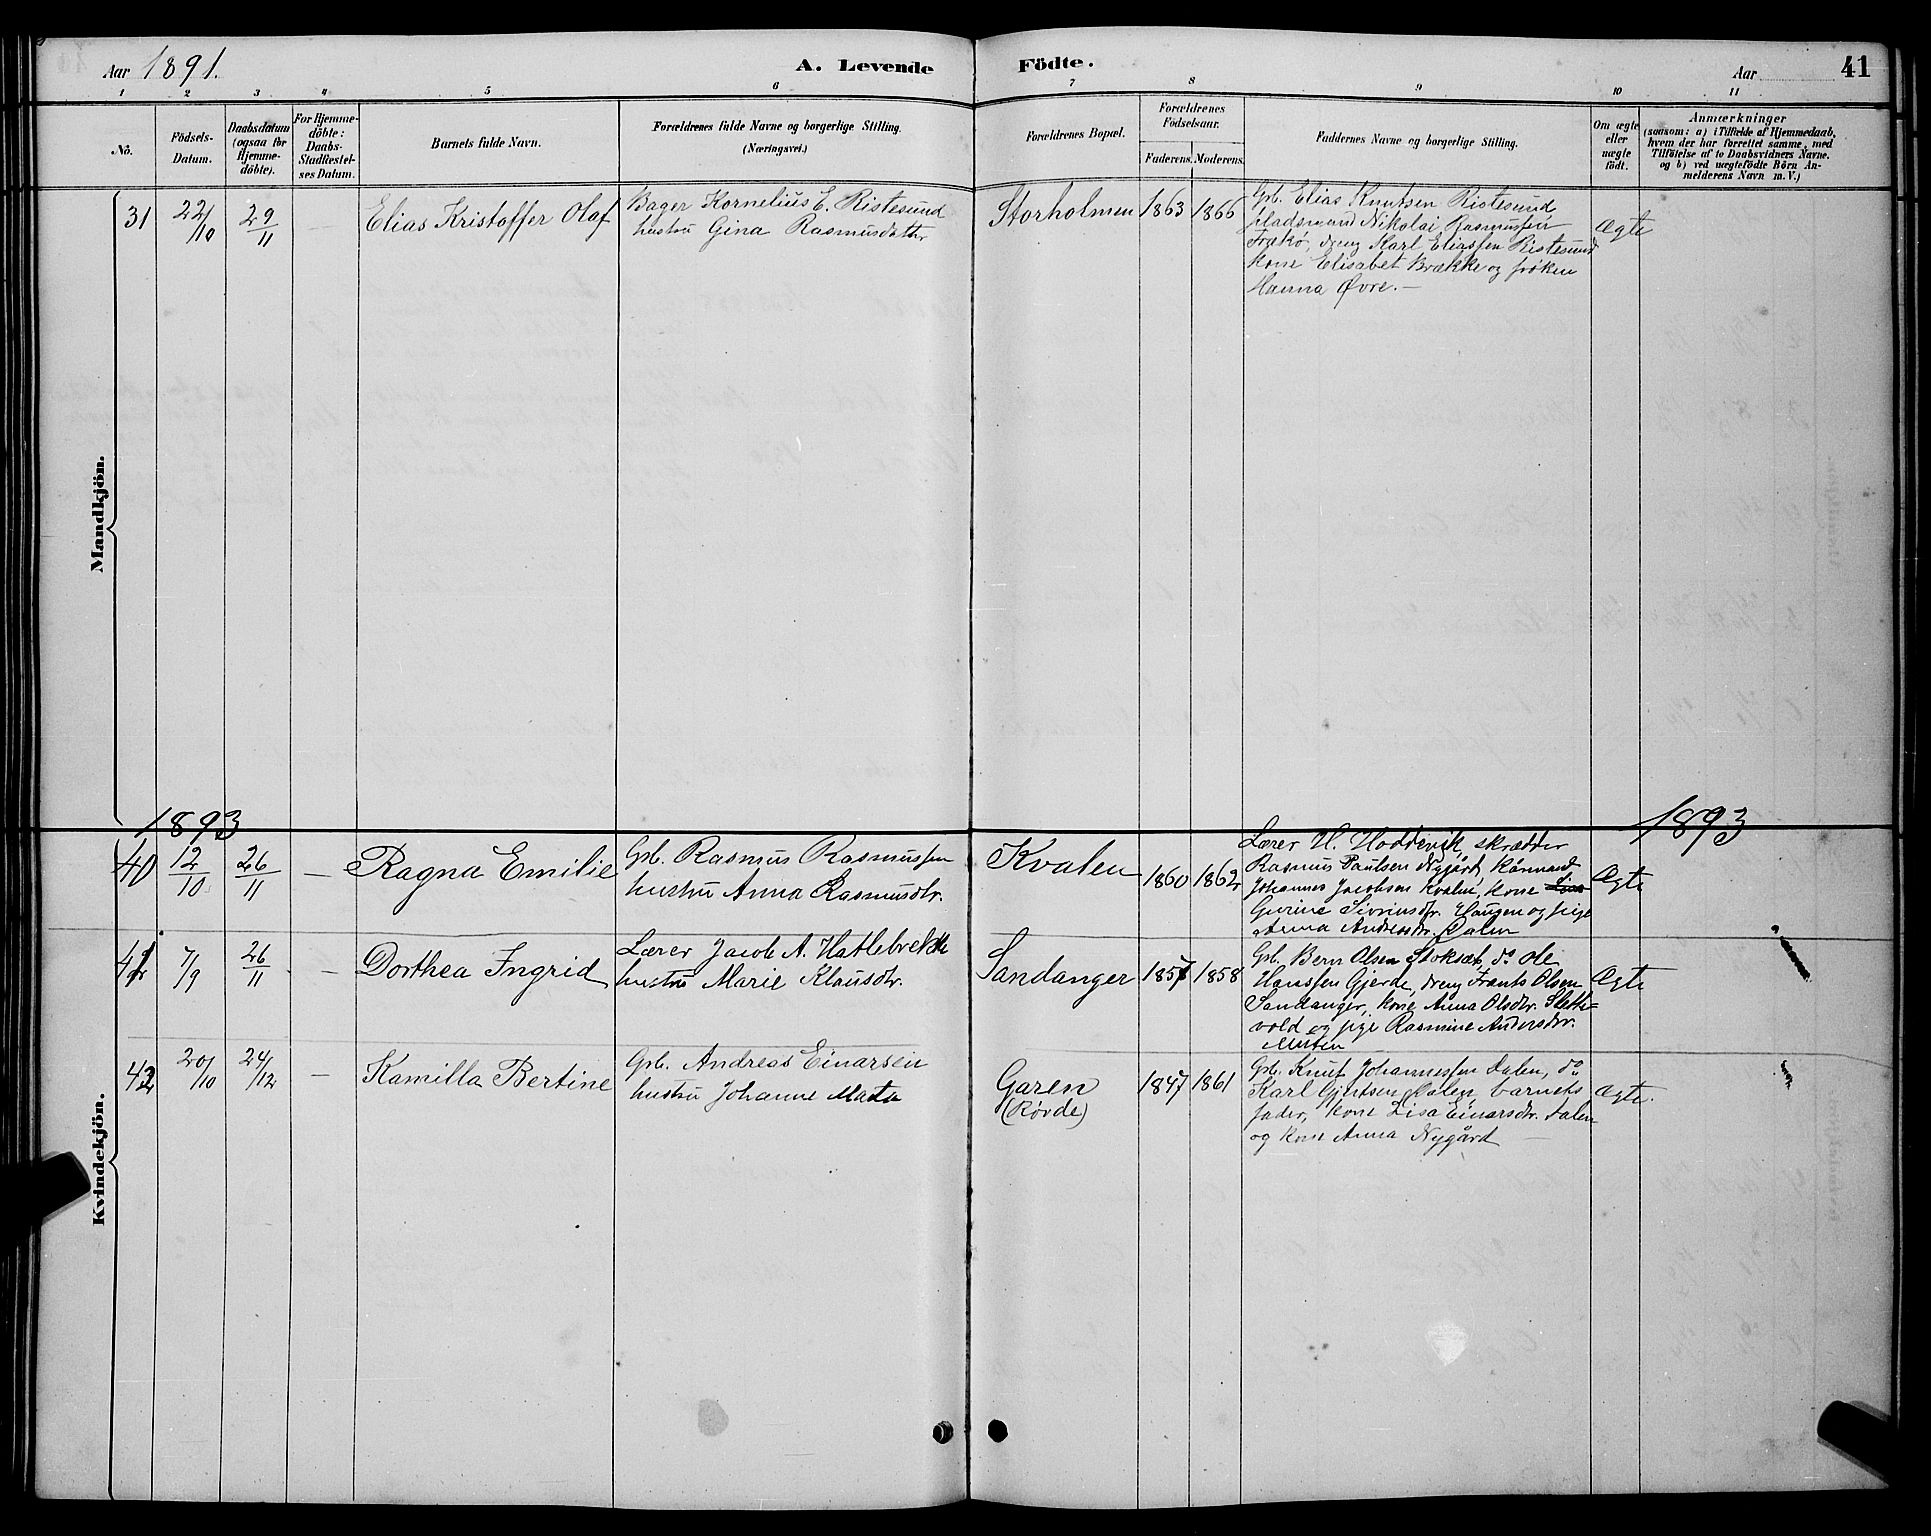 Aar 1891.
A. Levende Födte.
Aar 41
1 2 3 4 5 6 7 8 9 10 11
No.
Födsels-
Datum.
Daabsdatum
(ogsaa for
Hjemme-
döbte).
For Hjemme-
döbte:
Daabs-
Stadfæstel-
ses Datum.
Barnets fulde Navn.
Forældrenes fulde Navne og borgerlige Stilling.
(Næringsvei.)
Forældrenes Bopæl.
Forældrenes
Födselsaar.
Faderens. Moderens.
Faddernes Navne og borgerlige Stilling.
Om ægte
eller
uægte
födt.
Anmærkninger
(saasom: a) i Tilfælde af Hjemmedaab,
hvem der har forrettet samme, med
Tilföielse af to Daabsvidners Navne.
og b) ved uægtefödte Börn An-
melderens Navn m. V.)
Mandkjön.
31 22/10 29/11 Elias Kristoffer Olaf
Bager Kornelius E. Ristesund
hustru Gina Rasmusdatter
Storholmen 1863 1866
Gbr. Elias Knutsen Ristesund
pladsmand Nikolai Rasmussen
dreng Karl Eliassen Ristesund
kone Elisabet Brække og frøken
Hanna Øvre. —
Ægte
1893
1893
Kvindekjön.
40 12/10 26/11 — Ragna Emilie
Gbr. Rasmus Rasmussen
hustru Anna Rasmusdtr.
Kvalen 1860 1862
Lærer H. Hoddevik, skrædder
Rasmus Paulsen Nygård, kårmand
Johannes Jacobsen Kvalen, kone
Gurine Sivrinsdtr. Haugen og pige
Anna Andersdtr. Dalen
Ægte
41 7/9 26/11 — Dorthea Ingrid
Lærer Jacob A. Hatlebrekke
hustru Marie Klausdtr.
Sandanger 1857 1858
Gbr. Bern Olsen Stoksæt, do Ole
Hanssen Gjerde, dreng Frants Olsen
Sandanger, kone Anna Olsdtr. Slette-
vold og pige Rasmine Andersdtr.
Ægte
42 20/10 24/12 — Kamilla Bertine
Gbr. Andreas Einarsen
hustru Johanne Mata
Garen
(Rövde)
1847 1861
Gbr. Knut Johannessen Dalen, do
Karl Gjertsen Dalen, barnets
fader, kone Lisa Einarsdtr. Dalen
og kone Anna Nygård —
Ægte.